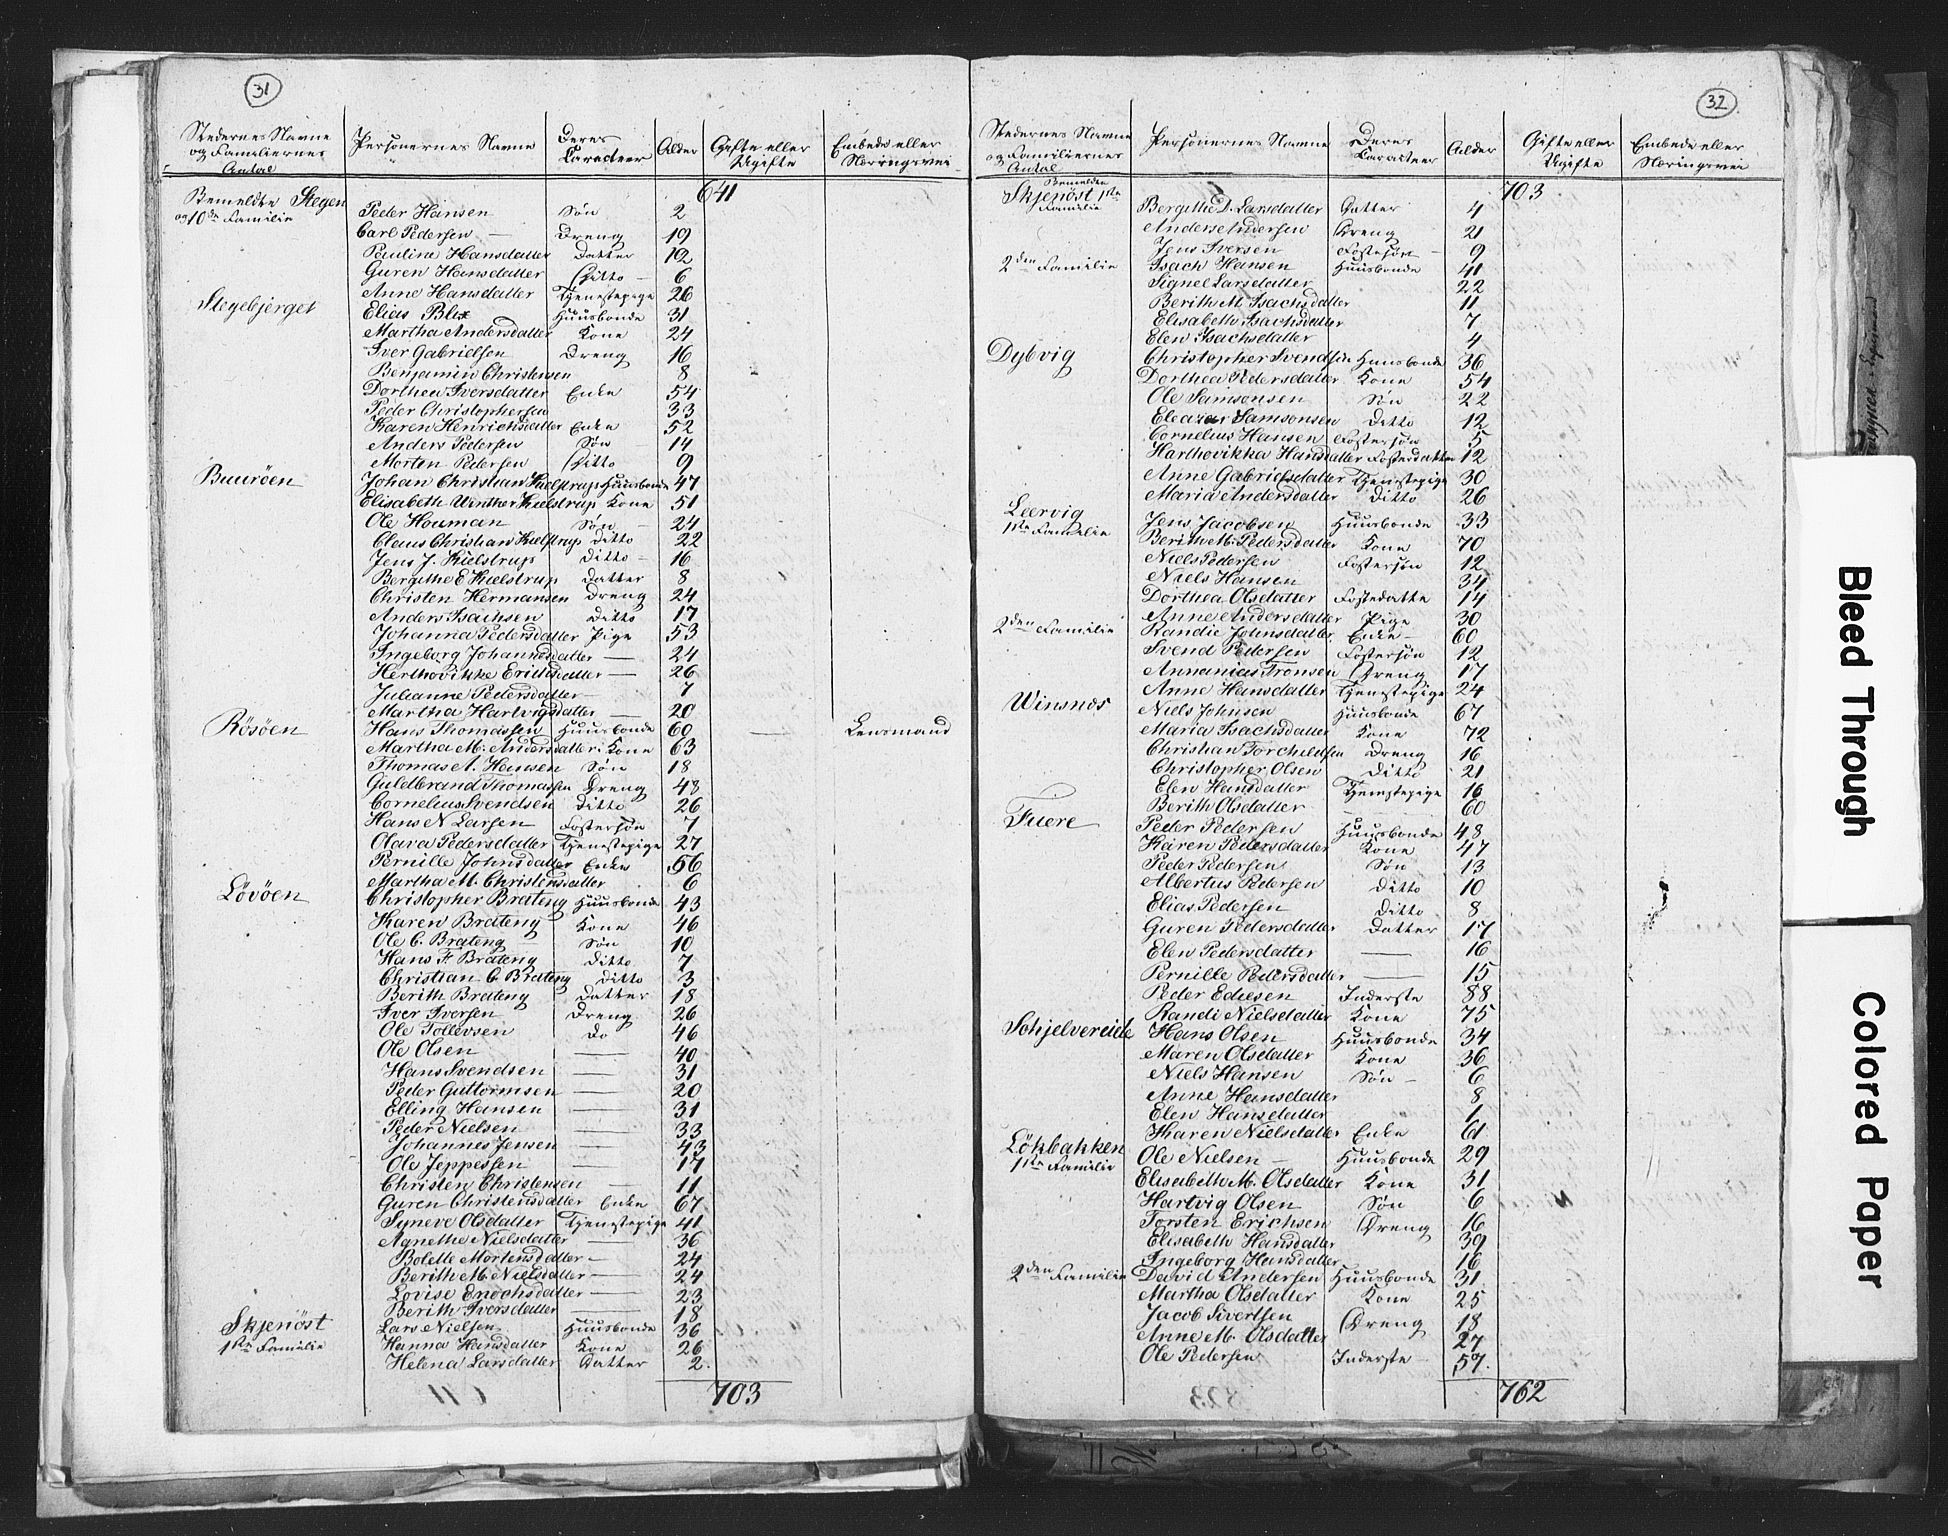 31
Stedernes Navne og Familiernes Antal | Personernes Navne | Deres Caracteer | Alder | Gifte eller Ugifte | Embede eller Næringsvei
641
Bemeldte Stegen og 10de Familie | Peder Hansen | Søn | 2
Carl Pedersen — | Dreng | 19
Pauline Hansdatter | Datter | 12
Guren Hansdatter | Ditto | 6
Anne Hansdatter | Tjenestepige | 26
Stegebjerget | Elias Blix | Huusbonde | 31
Martha Andersdatter | Kone | 24
Iver Gabrielsen | Dreng | 16
Benjamin Christensen | 8
Dorthea Iversdatter | Enke | 54
Peder Christophersen | 33
Karen Henrichsdatter | Enke | 52
Anders Pedersen | Søn | 14
Morten Pedersen | Ditto | 9
Buuröen | Johan Christian Kielstrup | Huusbonde | 47
Elisabeth Winther Kielstrup | Kone | 51
Ole Houman | Søn | 24
Claus Christian Kielstrup | Ditto | 22
Jens J. Kielstrup | Ditto | 16
Bergithe E Kielstrup | Datter | 8
Christen Hermansen | Dreng | 24
Anders Isachsen | Ditto | 17
Johanna Pedersdatter | Pige | 53
Ingeborg Johannesdatter | — | 24
Herthövikke Erichsdatter | — | 26
Julianne Pedersdatter | — | 7
Martha Hartvigsdatter | — | 20
Rösöen | Hans Thomassen | Huusbonde | 60 | — | Lensmand
Martha M. Andersdatter | Kone | 63
Thomas A. Hansen | Søn | 18
Guldbrand Thomassen | Dreng | 48
Cornelius Svendsen | Ditto | 26
Hans N Larsen | Fostersøn | 7
Olava Pedersdatter | Tjenestepige | 27
Pernille Johnsdatter | Enke | 56
Martha M. Christensdatter | 6
Lövöen | Christopher Brateng | Huusbonde | 43
Karen Brateng | Kone | 46
Ole C. Brateng | Søn | 10
Hans F Brateng | Ditto | 7
Christian C Brateng | Ditto | 3
Berith Brateng | Datter | 18
Iver Iversen | Dreng | 26
Ole Tollevsen | Do | 46
Ole Olsen | — | 40
Hans Svendsen | — | 31
Peder Guttormsen | — | 20
Elling Hansen | — | 31
Peder Nielsen | — | 33
Johannes Jensen | — | 43
Ole Jeppessen | — | 17
Christen Christensen | — | 11
Guren Christensdatter | Enke | 67
Syneve Olsdatter | Tjenestepige | 41
Agnethe Nielsdatter | — | 36
Bolette Mortensdatter | — | 24
Berith M. Nielsdatter | — | 24
Lovise Enochsdatter | — | 23
Berith Iversdatter | — | 18
Skjenöst 1ste Familie | Lars Nielsen | Huusbonde | 36
Hanna Hansdatter | Kone | 26
Helena Larsdatter | Datter | 2
703
32
Stedernes Navne og Familiernes Antal | Personernes Navne | Deres Caracteer | Alder | Gifte eller Ugifte | Embede eller Næringsvei
703
Bemeldte Skjenöst 1ste Familie | Bergithe D. Larsdatter | Datter | 4
Anders Andersen | Dreng | 21
Jens Iversen | Fostesøn | 9
2den Familie | Isach Hansen | Huusbonde | 41
Signel Larsdatter | 22
Berith M. Isachsdatter | 11
Elisabeth Isachsdatter | 7
Elen Isachsdatter | 4
Dybvig | Christopher Svendsen | Huusbonde | 36
Dorthea Pedersdatter | Kone | 54
Ole Samsonsen | Søn | 22
Eleazar Samsonsen | Ditto | 12
Cornelius Hansen | Fostersøn | 5
Harthevikka Hansdatter | Fosterdatter | 12
Anne Gabrielsdatter | Tjenestepige | 30
Maria Andersdatter | Ditto | 26
Leervig 1ste Familie | Jens Jacobsen | Huusbonde | 33
Berith M. Pedersdatter | Kone | 70
Niels Pedersen | Fostersøn | 12
Niels Hansen | 34
Dorthea Olsdatter | Fostedatte | 14
Anne Andersdatter | Pige | 30
2den Familie | Randie Johnsdatter | Enke | 60
Svend Pedersen | Fostersøn | 12
Annanias Tronsen | Dreng | 17
Anne Hansdatter | Tjenestepige | 24
Winsnæs | Niels Johnsen | Huusbonde | 67
Maria Isachsdatter | Kone | 72
Christian Torchildsen | Dreng | 16
Christopher Olsen | Ditto | 21
Elen Hansdatter | Tjenestepige | 16
Berith Olsdatter | 60
Fuere | Peder Pedersen | Huusbonde | 48
Karen Pedersdatter | Kone | 47
Peder Pedersen | Søn | 13
Albertus Pedersen | Ditto | 10
Elias Pedersen | Ditto | 8
Guren Pedersdatter | Datter | 17
Elen Pedersdatter | — | 16
Pernille Pedersdatter | — | 15
Peder Ediesen | Inderste | 88
Randi Nielsdatter | Kone | 75
Schjelvereide | Hans Olsen | Huusbonde | 34
Maren Olsdatter | Kone | 36
Niels Hansen | Søn | 6
Anne Hansdatter | 8
Elen Hansdatter | 1
Karen Nielsdatter | Enke | 61
Lökbakken 1ste Familie | Ole Nielsen | Huusbonde | 29
Elisabeth M. Olsdatter | Kone | 31
Hartvig Olsen | Søn | 6
Torsten Erichsen | Dreng | 16
Elisabeth Hansdatter | 39
Ingeborg Hansdatter | 16
2den Familie | David Andersen | Huusbonde | 31
Martha Olsdatter | Kone | 25
Jacob Sivertsen | Dreng | 18
Anne M. Olsdatter | 27
Ole Pedersen | Inderste | 57
762
Bleed Through
Colored Paper